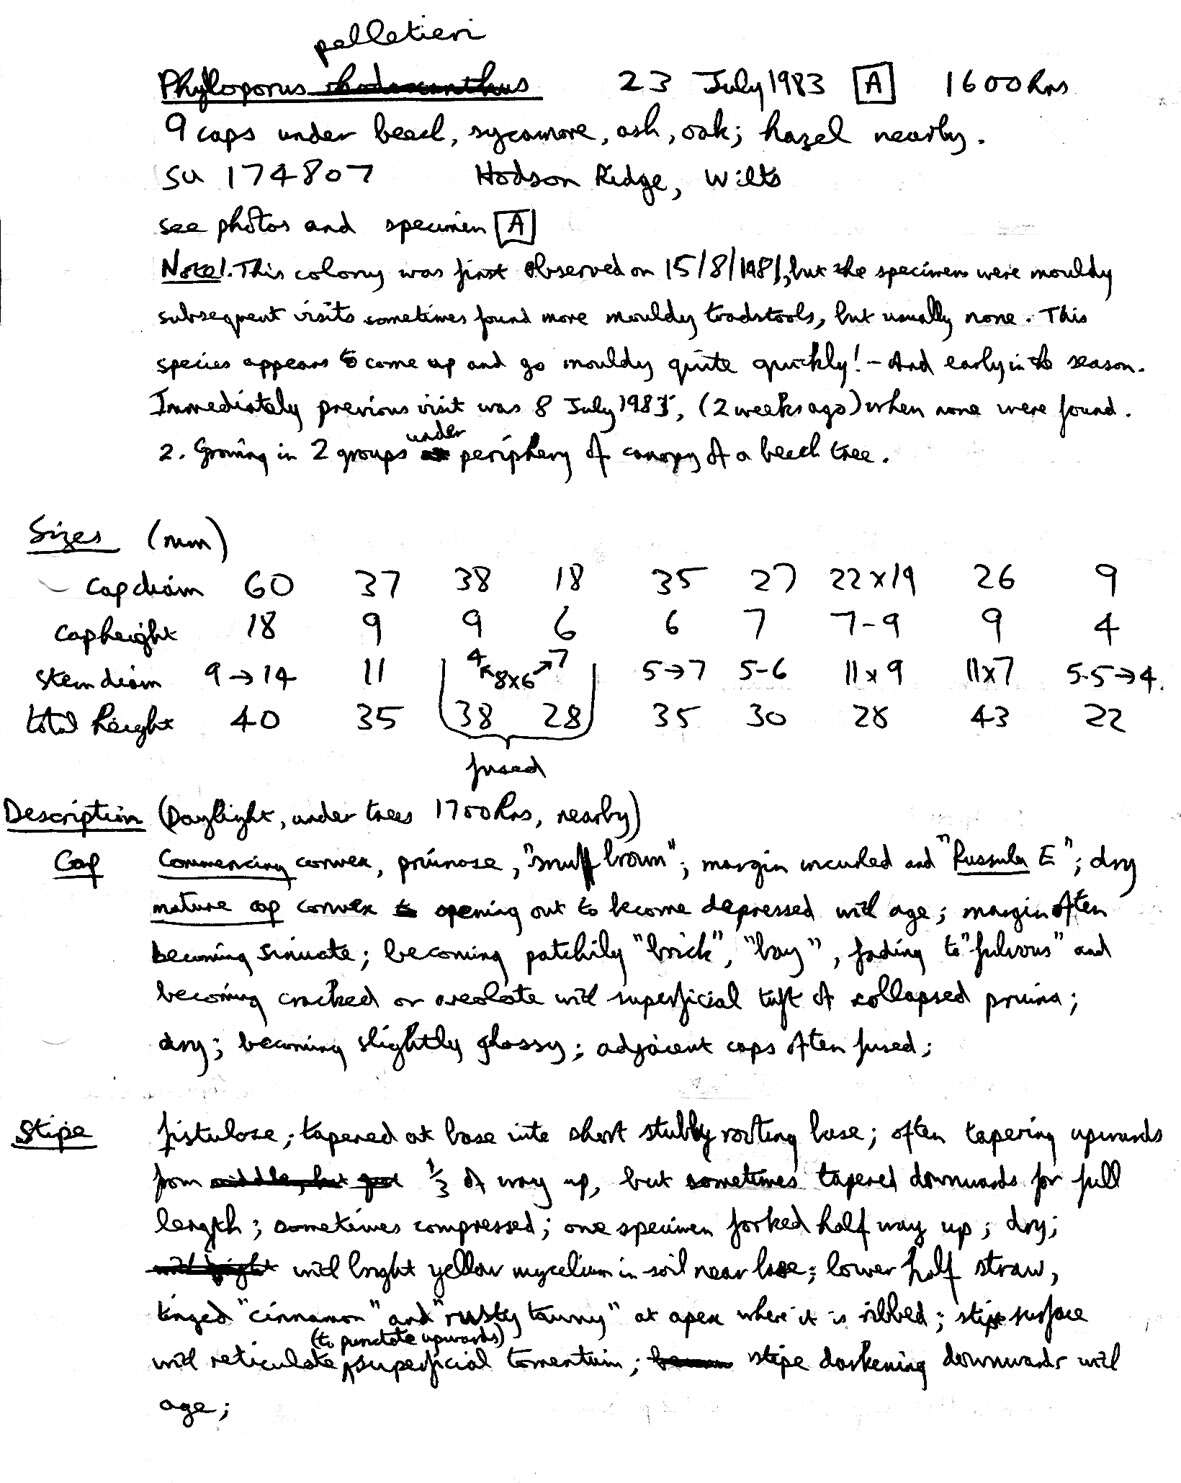 pelletieri
Phylloporus rhodoxanthus 23 July 1983 A 1600 hrs
9 caps under beech, sycamore, ash, oak; hazel nearby.
SU 174807 Hodson Ridge, Wilts
see photos and specimen A
Note 1. This colony was first observed on 15/8/1981, but the specimens were mouldy
subsequent visits sometimes found more mouldy toadstools, but usually none. This
species appears to come up and go mouldy quite quickly! - And early in the season.
Immediately previous visit was 8 July 1983, (2 weeks ago) when none were found.
under
2. Growing in 2 groups periphery of canopy of a beech tree.
Sizes (mm)
Cap diam 60 37 38 18 35 27 22 x 19 26 9
Cap height 18 9 9 6 6 7 7-9 9 4
stem diam 9 → 14 11 4 ↖ 8x6 ↗ 7 5→7 5-6 11 x 9 11x7 5.5→4.
total height 40 35 38 28 35 30 28 43 22
fused
Description (Daylight, under trees 1700 hrs, nearby)
Cap Commencing convex, pruinose, "snuff brown"; margin incurled and "Russula E"; dry
mature cap convex opening out to become depressed with age; margin often
becoming sinuate; becoming patchily "brick", "bay", fading to "fulvous" and
becoming cracked or areolate with superficial tuft of collapsed pruina;
dry; becoming slightly glossy; adjacent caps often fused;
Stipe fistulose; tapered at base into short stubby rooting base; often tapering upwards
from 1/3 of way up, but sometimes tapered downwards for full
length; sometimes compressed; one specimen forked half way up; dry;
with bright yellow mycelium in soil near base; lower half straw,
tinged "cinnamon" and "rusty tawny" at apex where it is ribbed; stipe surface
(to punctate upwards)
with reticulate superficial tomentum; stipe darkening downwards with
age;